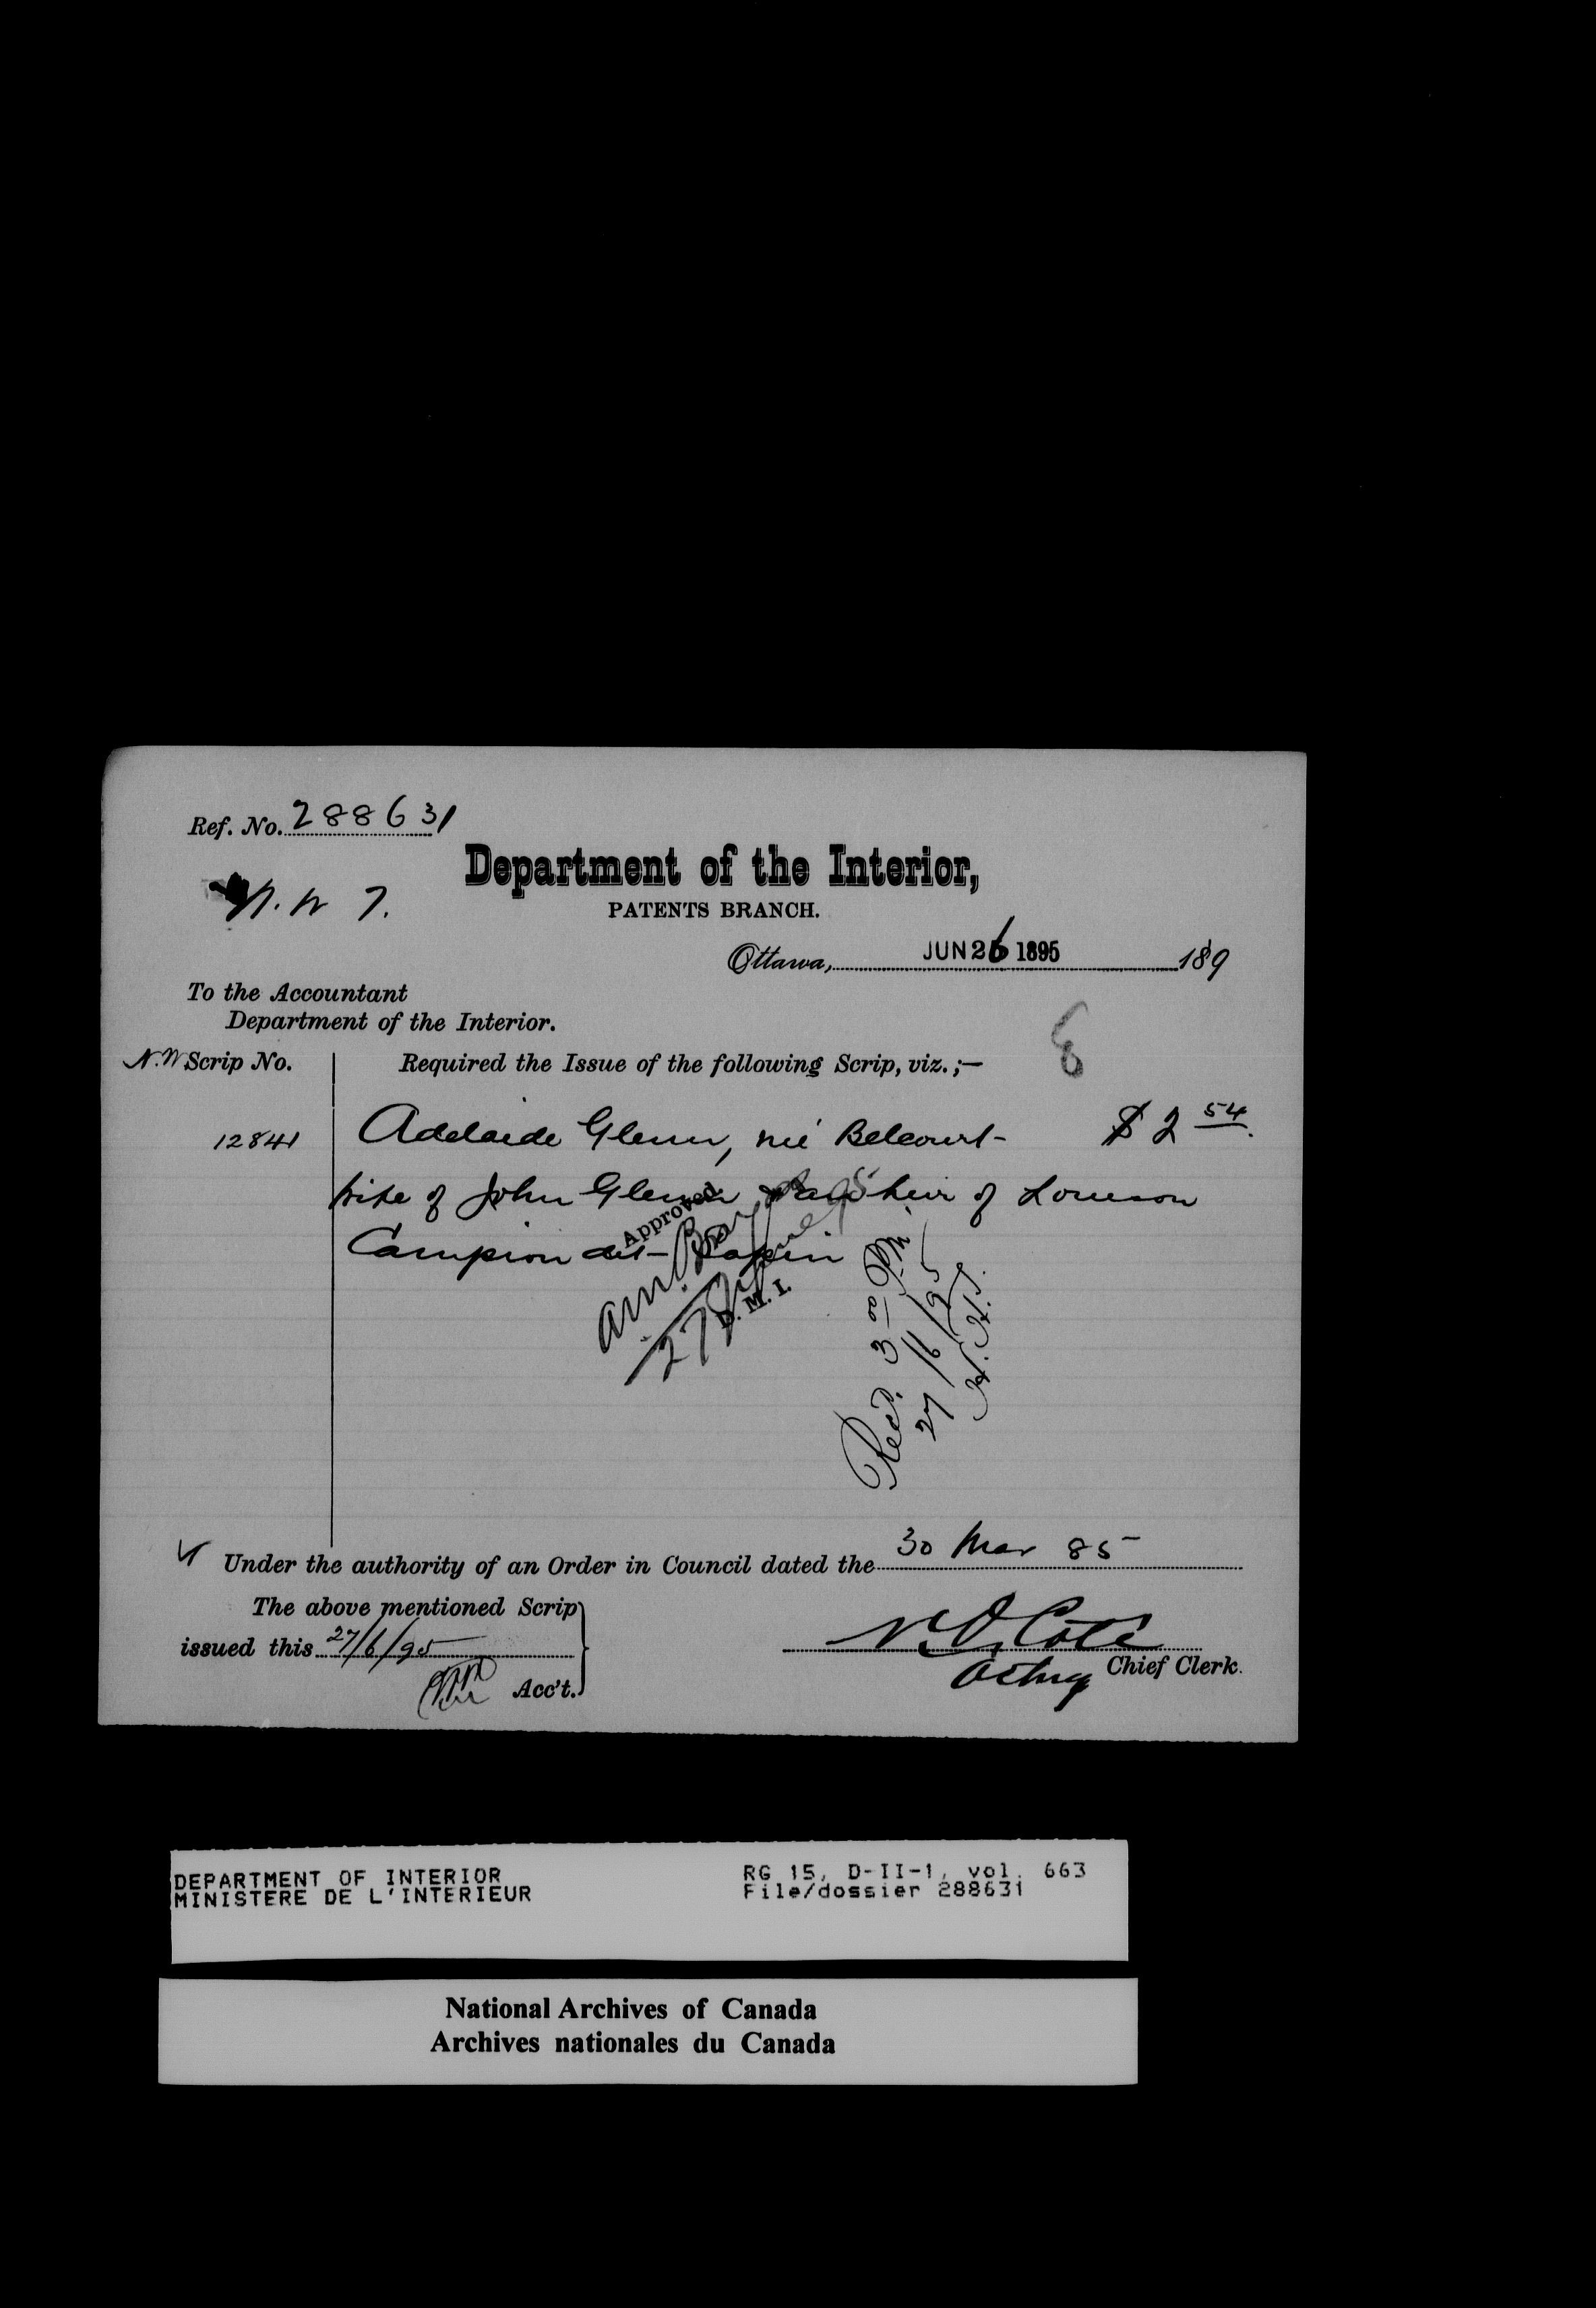 Ref. No. 288631
N. W T.
Department of the Interior,
PATENTS BRANCH.
Ottawa, JUN 26 1895 189
To the Accountant
Department of the Interior.
N.W Scrip No.
Required the Issue of the following Scrip, viz.;—
8
12841
Adelaide Glenn, né Belcourt $ 2 54
wife of John Glenn and heir of Louison
Campion dit
Approved
27 June 95
D. M. I.
Recd. 3 00 P.M.
27/6/95
Under the authority of an Order in Council dated the 30 Mar 85
The above mentioned Scrip
issued this 27/6/95
Acc't.
N.O. Coté
Acting Chief Clerk.
DEPARTMENT OF INTERIOR
MINISTERE DE L'INTERIEUR
RG 15, D-II-1, vol. 663
File/dossier 288631
National Archives of Canada
Archives nationales du Canada